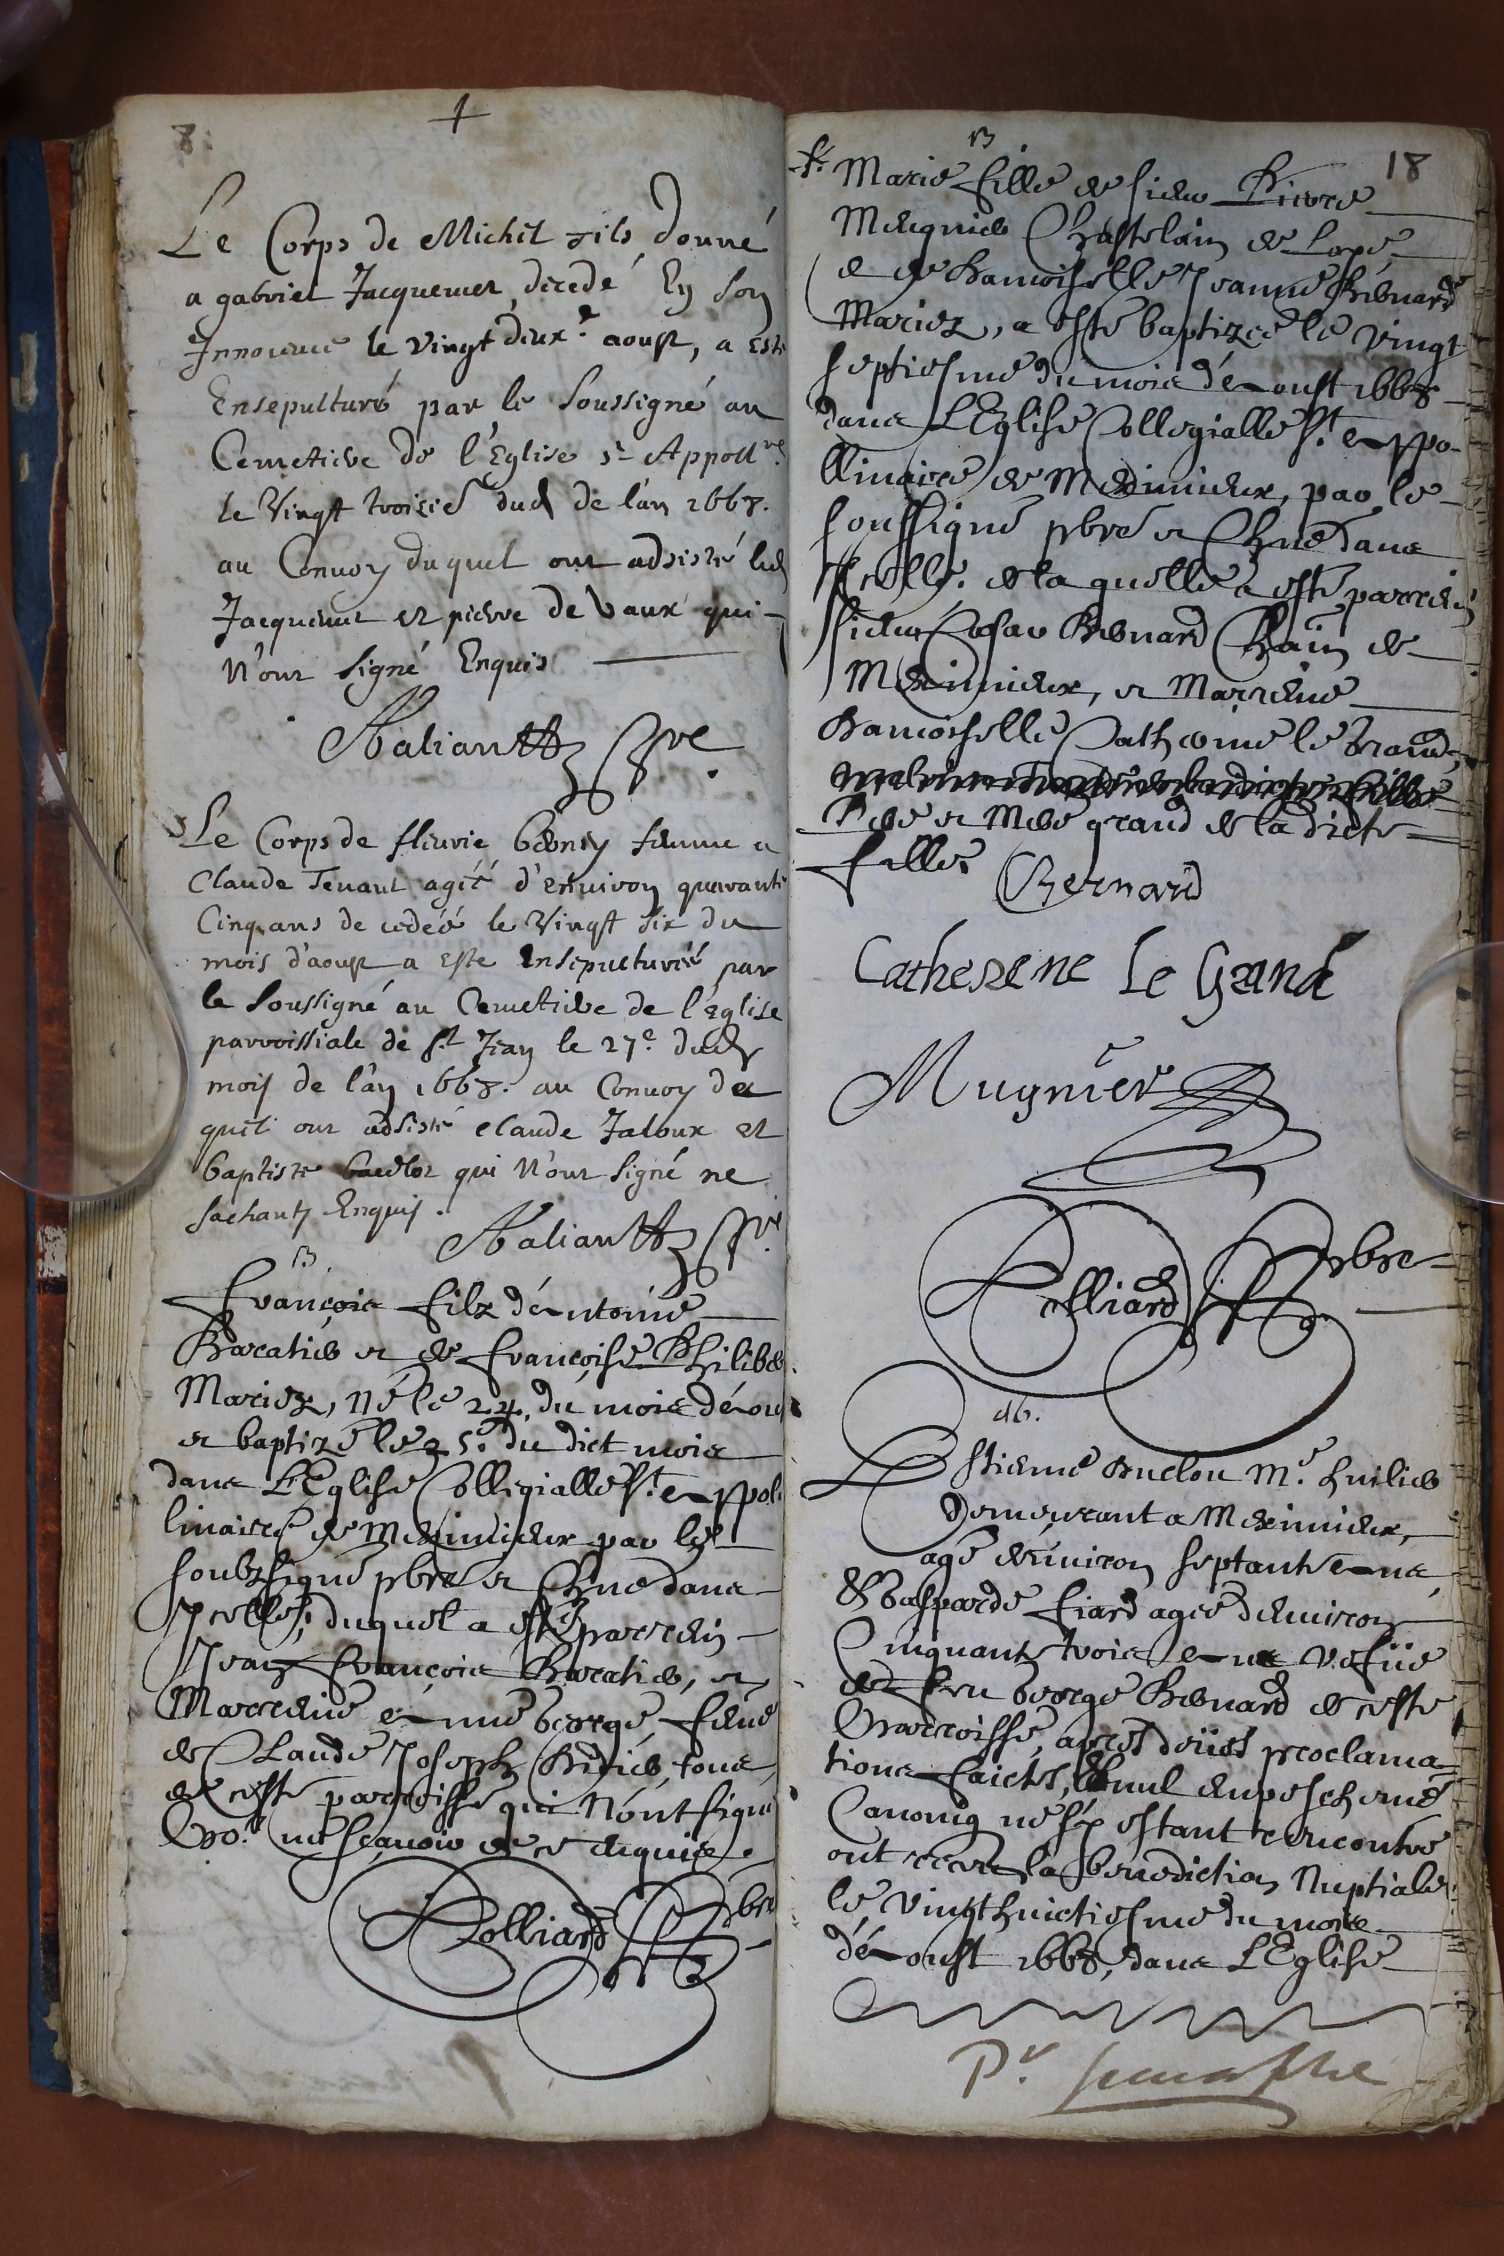 8.
Le Corps de Michel fils donné
a gabriel Jacquemet decedé En son
Innocence le vingt deux.e aoust, a Esté
Ensepulturé par le soussigné au
Cemetiere de l'Eglise St Appoll.re
le Vingt troizie dud de l'an 1668.
au Convoy duquel ont adsisté led
Jacquemet et pierre de vaux qui
N'ont signé Enquis
Le Corps de fleurie femme a
Claude Tenant agéé d'environ quarante
Cinq ans decedéé le Vingt six du
mois d'aoust a Este Ensepulturéé par
le soussigné au Cemetiere de l'Eglise
parroissiale de St Jean le 27e. dud
mois de l'an 1668. au Convoy de
quel ont adsisté Claude Jaloux et
baptiste qui N'ont signé ne
sachantz Enquis.
B
François filz d'Antoine
et de Françoise Philibe
Mariez, né le 24. du mois d'Aou
et baptizé le 25e. du dict mois
dans L'Eglise Collegialle St. Appol
linaire de Meximieux par le
soubzsigné pbre et Chne dans
Jcelle, duquel a esté parrein
Jean François et
Marreine Anne george fene
de Claude Joseph tous
de ceste parroisse qui N'ont signé
po.r ne sçavoir de ce enquis.
Rolliard pbre
18
B
Marie fille de sieur Pierre
Meugnier Chastelain de Loye
et de Damoiselle Jeanne Bernard
Mariez, a esté baptizée le vingt
septiesme du mois d'Aoust 1668
dans L'Eglise Collegialle St. Appo-
llinaire de Meximieux, par le
soussigné pbre et Chne dans
Jcelle. de laquelle a esté parrein
sieur Cesar Bernard Chain de
Meximieux, et Marreine
Damoiselle Catherine le Grand,
Pere et Mere grand de la dicte
fille.
Bernard
Catherene Le Grand
Mugnier
Rolliard pbre
M.
Estienne Buclon Me. huilier
Demeurant a Meximieux,
agé d'environ septante Ans
Et Gasparde fiard agée d'environ
Cinquante trois Ans vefüe
de feu george Bernard de ceste
Parroisse, apres deües proclama
tions faictes, Et nul empeschemt
Canoniq ne s'y estant rencontré
ont receu la benediction Nuptiale
le vingthuictiesme du mois
d'Aoust 1668, dans L'Eglise